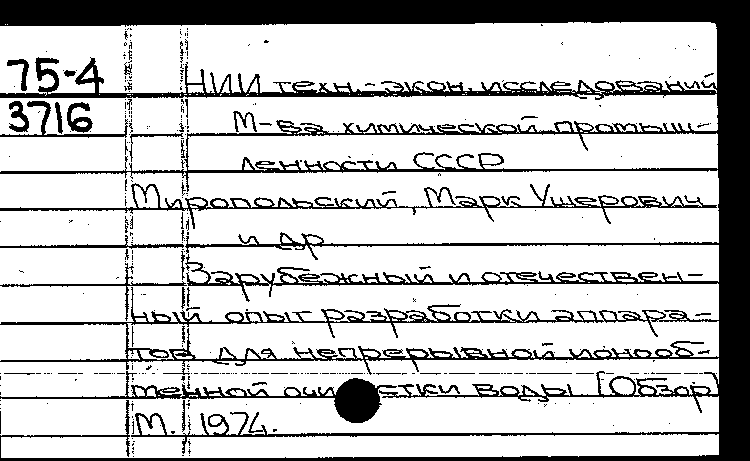 75-4 НИИ техн.-экон. исследований
3716 М-ва химической промыш-
ленности СССР
Миропольский, Марк Ушерович
и др
Зарубежный и отечествен-
ный опыт разработки аппара-
тов для непрерывной ионооб-
менной очистки воды [Обзор]
М. 1974.